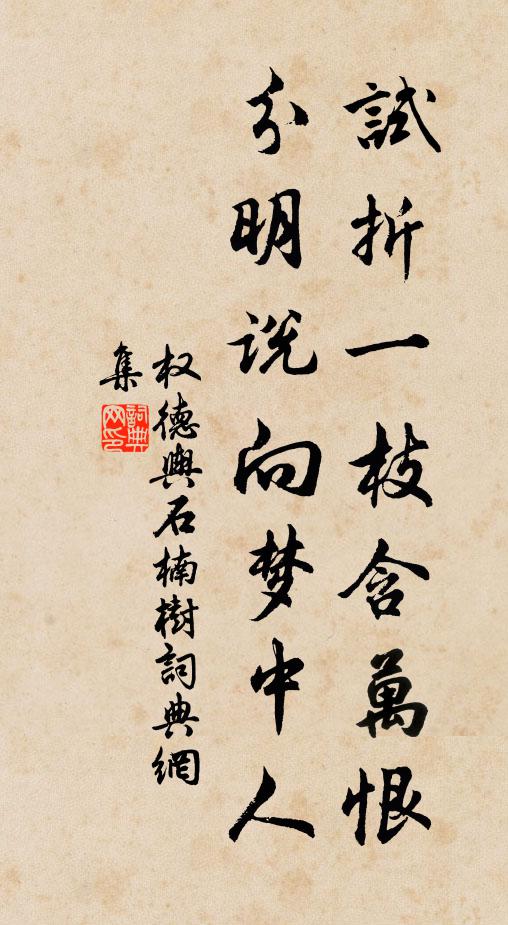 試折一枝含萬恨
分明说向梦中人
权德輿石楠樹詞典網
集
詞典
网印